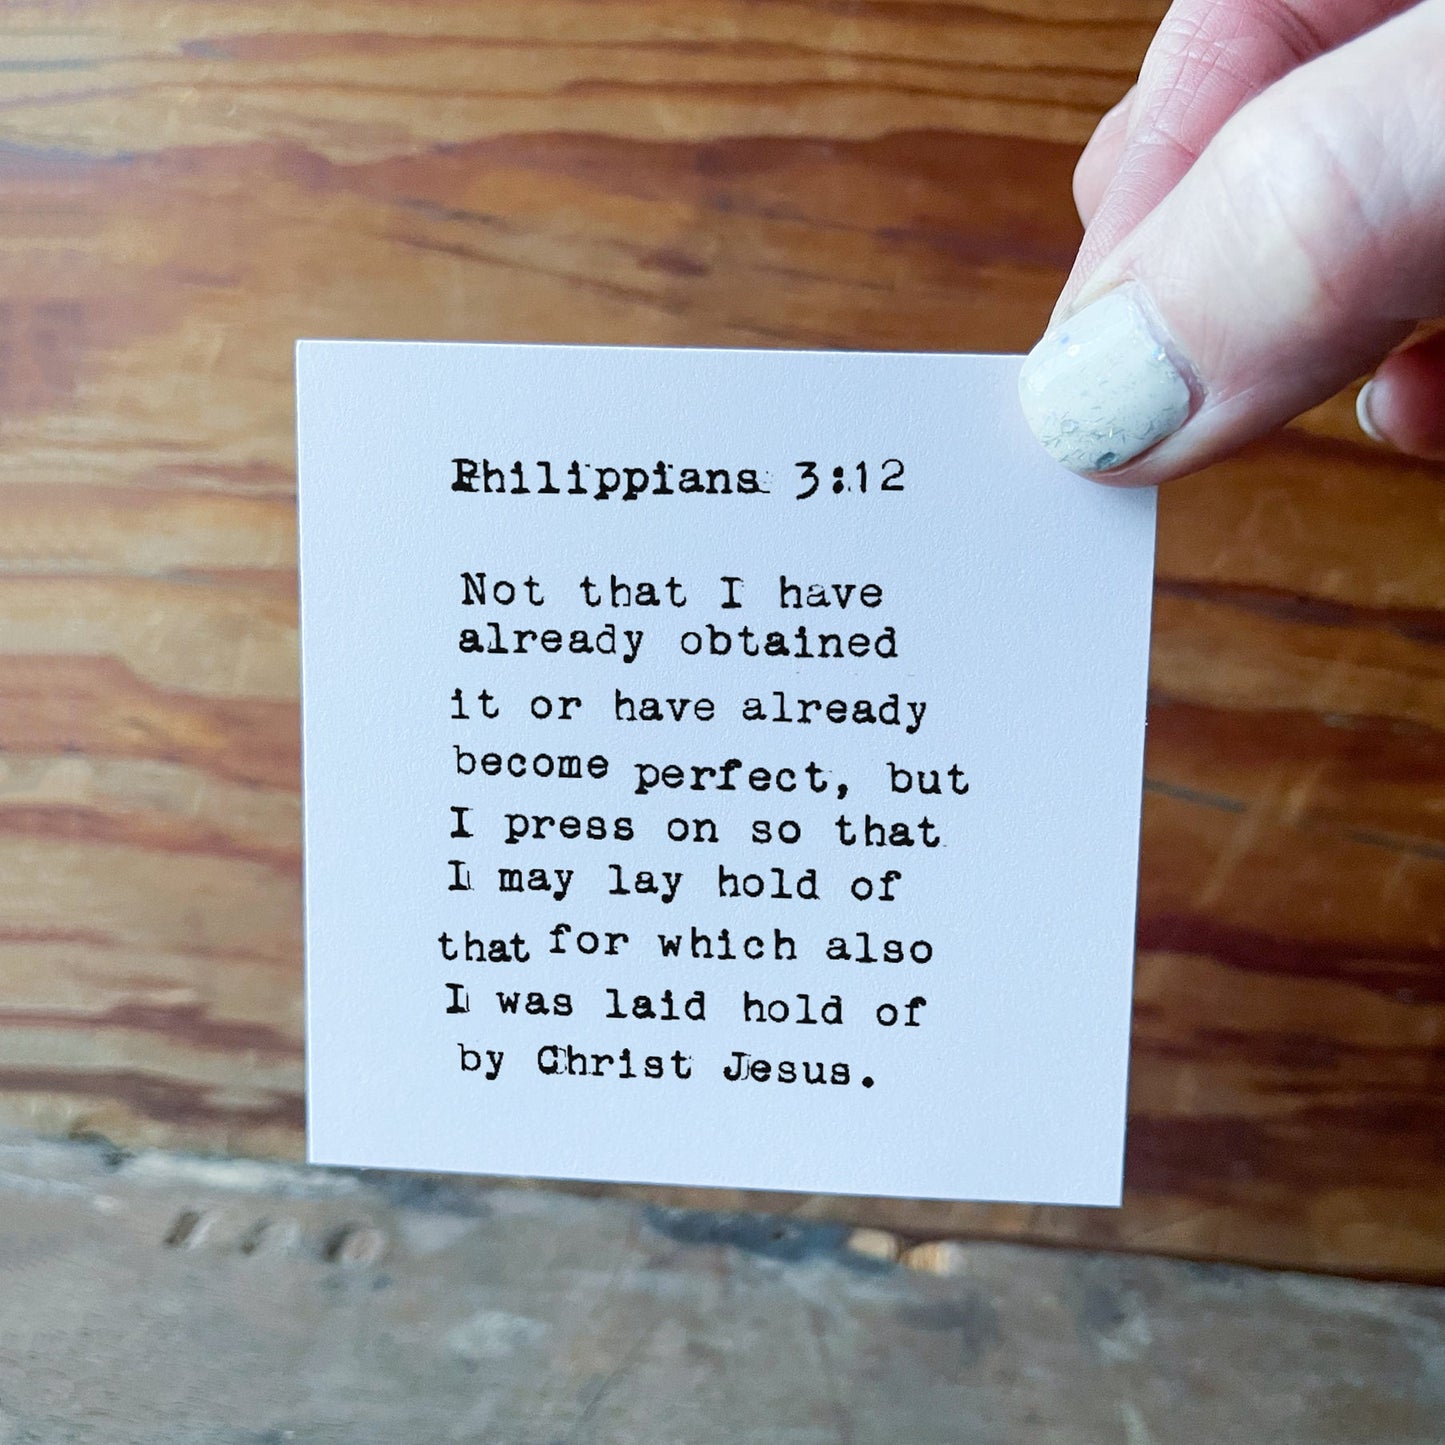 Philippians 3:12
Not that I have
already obtained
it or have already
become perfect, but
I press on so that
I may lay hold of
that for which also
I was laid hold of
by Christ Jesus.